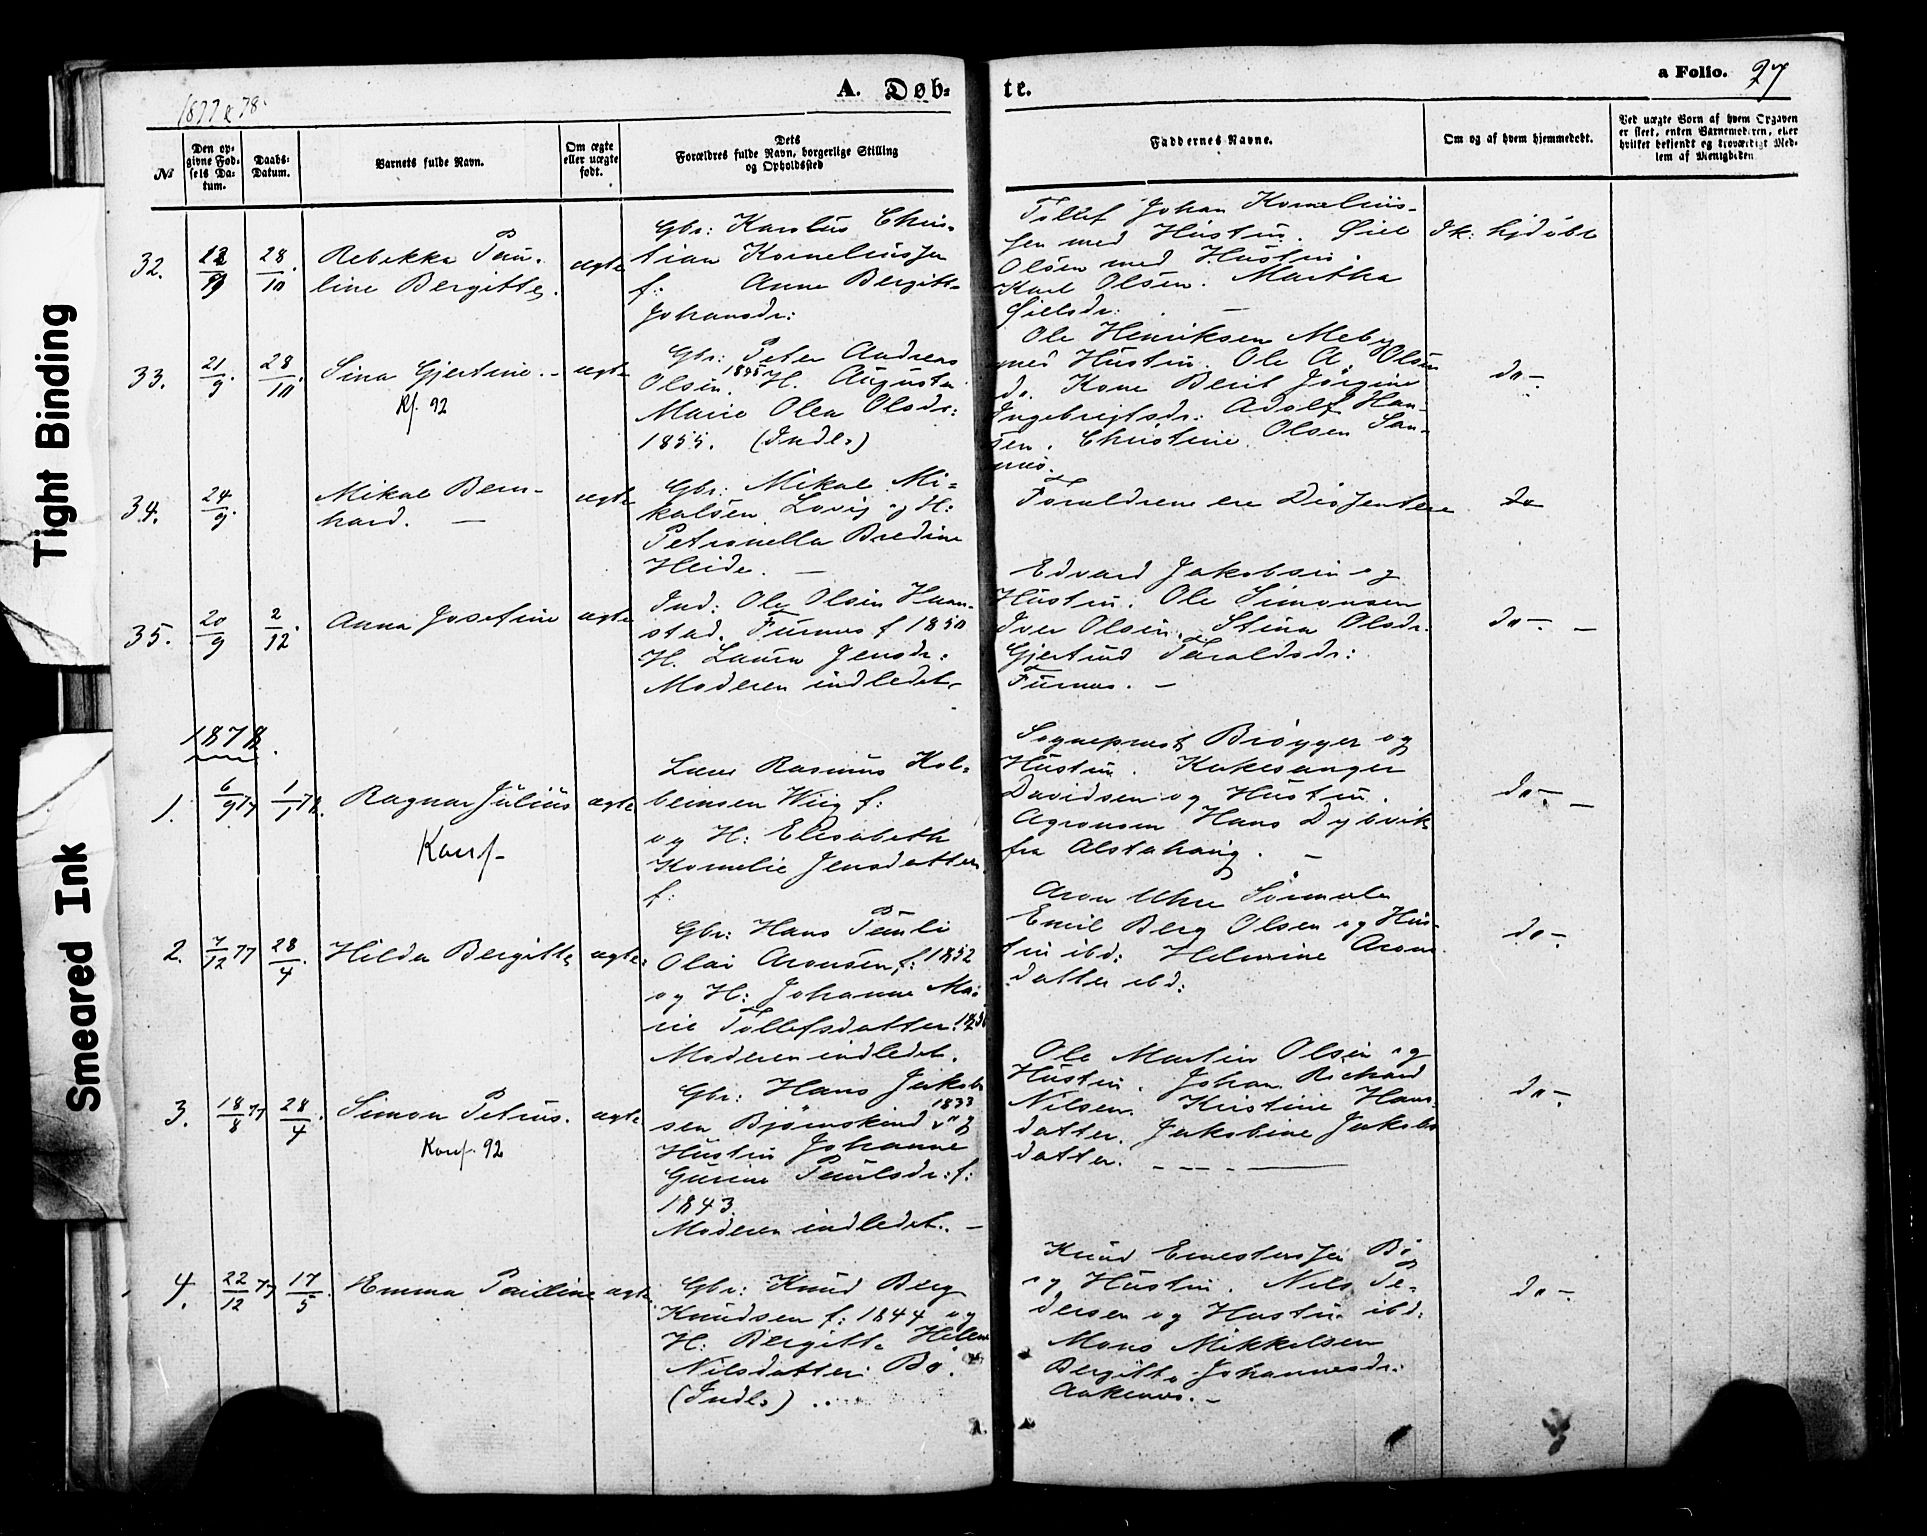 Tight Binding
Smeared Ink
1877 & 78.
A. Døb-
te.
a Folio. 27
No
Den op-
givne Fød-
sels Da-
tum.
Daabs-
Datum.
Barnets fulde Navn.
Om ægte
eller uægte
født.
Dets
Forældres fulde Navn, borgerlige Stilling
og Opholdssted
Faddernes Navne.
Om og af hvem hjemmedøbt.
Ved uægte Børn af hvem Opgaven
er skeet, enten Barnemoderen, eller
hvilket bekjendt og troværdigt Med-
lem af Menigheden
32.
12/9
28/10.
Rebekka Pau-
line Bergitte.
ægte
Gbr: Karolus Chris-
tian Korneliussen
f: Anne Bergitte
Johansdr:
Tollef Johan Kornelius-
sen med Hustru.
Olsen med Hustru.
Karl Olsen. Martha
Ik: hjdøbt
33.
21/9.
28/10.
Sina Gjertine. -
Kf. 92
ægte
Gbr: Peter Andreas
Olsen. 1855 H. Augusta
Marie Olea Olsdr:
1855. (Indl.)
Ole Henriksen Meby
Hustru. Ole A. Olsen
do. Kone Berit Jørgine
Ingebrigtsdr: Adolf Han-
sen. Christine Olsen San-
nes.
do-.
34.
24/9.
Mikal Bern-
hard. —
ægte
Gbr: Mikal Mi-
kalsen Lovig og H:
Petronella Bredine
Heide. —
Forældrene ere Dissentere
do
35.
20/9
2/12.
Anna Josefine
ægte
Ind: Ole Olsen Haan-
stad. Furnes f 1850
H. Laura Jensdr:
Moderen indledet.
Edvard Jakobsen og
Hustru. Ole Simonsen
Iver Olsen. Stina Olsdr.
Gjertrud Taraldsdr:
Furnes. —
do-. —
1878.
1.
6/9 77
1/1 78.
Ragnar Julius
Konf-
ægte
Lars Rasmus Hol-
beinsen Wiig f:
og H: Elisabeth
Kornelie Jensdatter
f:
Sogneprest Brøgger og
Hustru.
Davidsen og Hustru.
Hans Dybvik
fra Alstahaug. —
do-. —
2.
7/12 77
28/4.
Hilda Bergitte
ægte:
Gbr: Hans Pauli
Olai Aronsen, f: 1852
og H: Johanne Ma-
rie Tollefsdatter.
Moderen indledet.
Aron Uhre
Emil Berg Olsen og Hus-
tru ibd: Helmine Arons
datter ibd:
do-.
3.
18/8 77
28/4.
Simon Petrus.
Konf. 92
ægte
Gbr: Hans Jakob-
sen Bjørnskind 1833 og
Hustru Johanne
Gurine Paulsdr: f:
1843.
Moderen indledet. —
Ole Martin Olsen og
Hustru. Johan Richard
Nilsen. Kristine Hans-
datter. Jakobine Jakobs
datter. — — — —
do-.
4.
22/12 77
17/5.
Emma Pauline
ægte.
Gbr: Knud Berg
Knudsen f: 1844 og
H: Bergitte Helene
Nilsdatter Bø.
(Indl.) ..
Knud Ernestussen Bø
og Hustru. Nils Pe-
dersen og Hustru ibd:
Mons Mikkelsen
Bergitte Johannesdr:
Aakenes. —
do-.